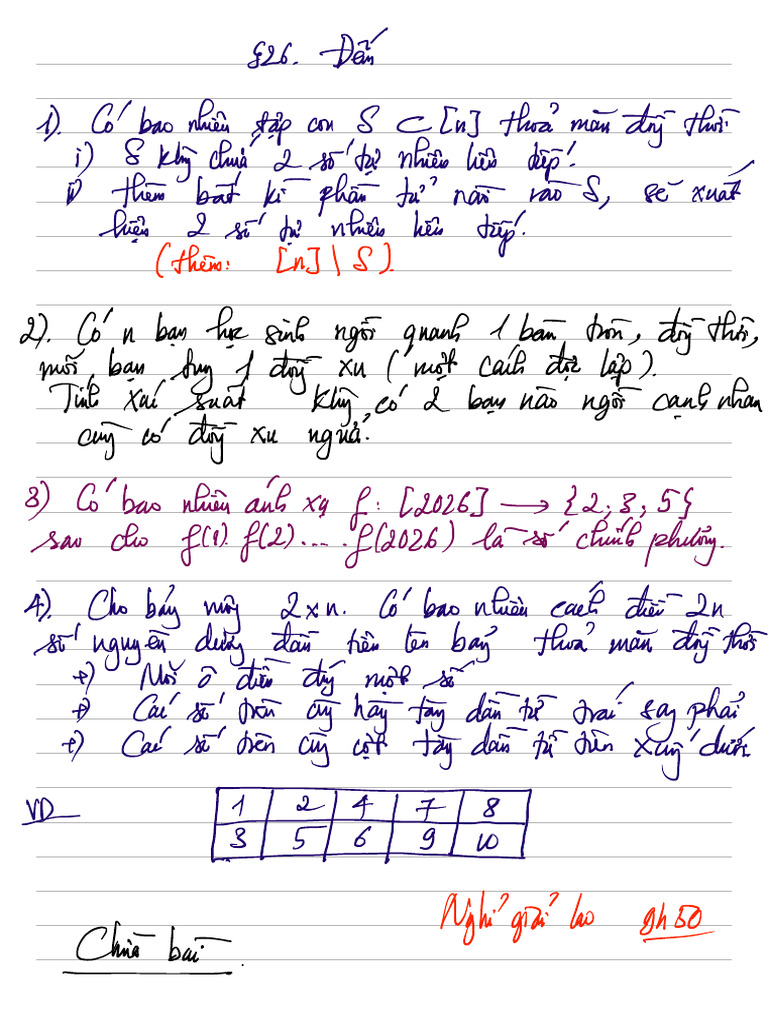 §26. Đếm
1). Có bao nhiêu tập con S ⊂ [n] thoả mãn đồng thời:
i) S không chứa 2 số tự nhiên liên tiếp.
ii) thêm bất kì phần tử nào vào S, sẽ xuất
hiện 2 số tự nhiên liên tiếp.
(thêm: [n] \ S).
2). Có n bạn học sinh ngồi quanh 1 bàn tròn, đồng thời,
mỗi bạn tung 1 đồng xu (một cách độc lập).
Tính xác suất không có 2 bạn nào ngồi cạnh nhau
cùng có đồng xu ngửa.
3) Có bao nhiêu ánh xạ f: [2026] → {2; 3; 5}
sao cho f(1). f(2). ... . f(2026) là số chính phương.
4). Cho bảng 2×n. Có bao nhiêu cách điền 2n
số nguyên dương đầu tiên lên bảng thoả mãn đồng thời
+) Mỗi ô điền đúng một số
+) Các số trên cùng hàng tăng dần từ trái sang phải
+) Các số trên cùng cột tăng dần từ trên xuống dưới.
VD
1 2 4 7 8
3 5 6 9 10
Nghỉ giải lao 9h50
Chữa bài.